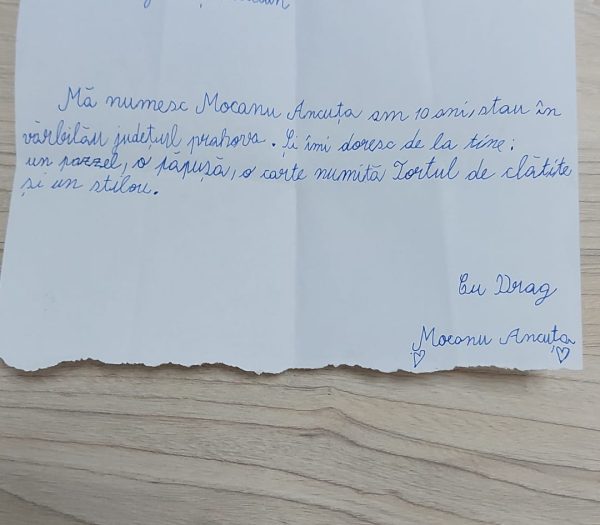 Mă numesc Mocanu Ancuța am 10 ani, stau în
vărbilău județul prahova. Și îmi doresc de la tine:
un pazzel, o păpușă, o carte numită Tortul de clătite
și un stilou.
Cu Drag
Mocanu Ancuța